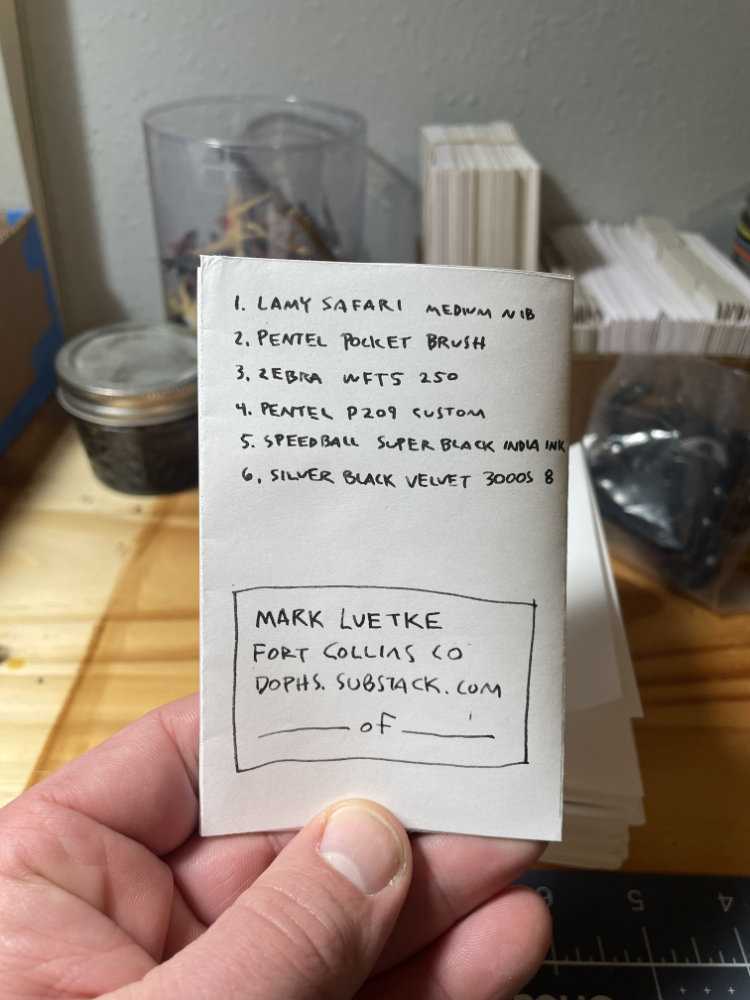 1. LAMY SAFARI MEDIUM NIB
2. PENTEL POCKET BRUSH
3. ZEBRA WFT5 250
4. PENTEL P209 CUSTOM
5. SPEEDBALL SUPER BLACK INDIA INK
6. SILVER BLACK VELVET 3000S 8
MARK LUETKE
FORT COLLINS CO
DOPHS.SUBSTACK.COM
______ of ______
6 5 4